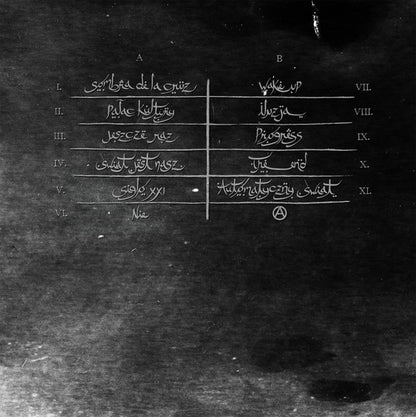 A B
I. Sombra de la cruz Wake up VII.
II. Pałac kultury iluzja VIII.
III. Jeszcze raz Progress IX.
IV. Świat jest nasz The end X.
V. Siglo XXI Automatyczny świat XI.
VI. Nie Ⓐ